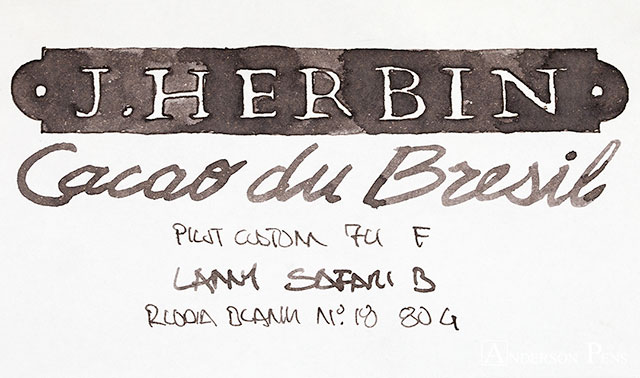 J. HERBIN
Cacao du Bresil
PILOT CUSTOM 74 F
LAMY SAFARI B
RHODIA BLANK Nº. 18 80 G
ANDERSON PENS